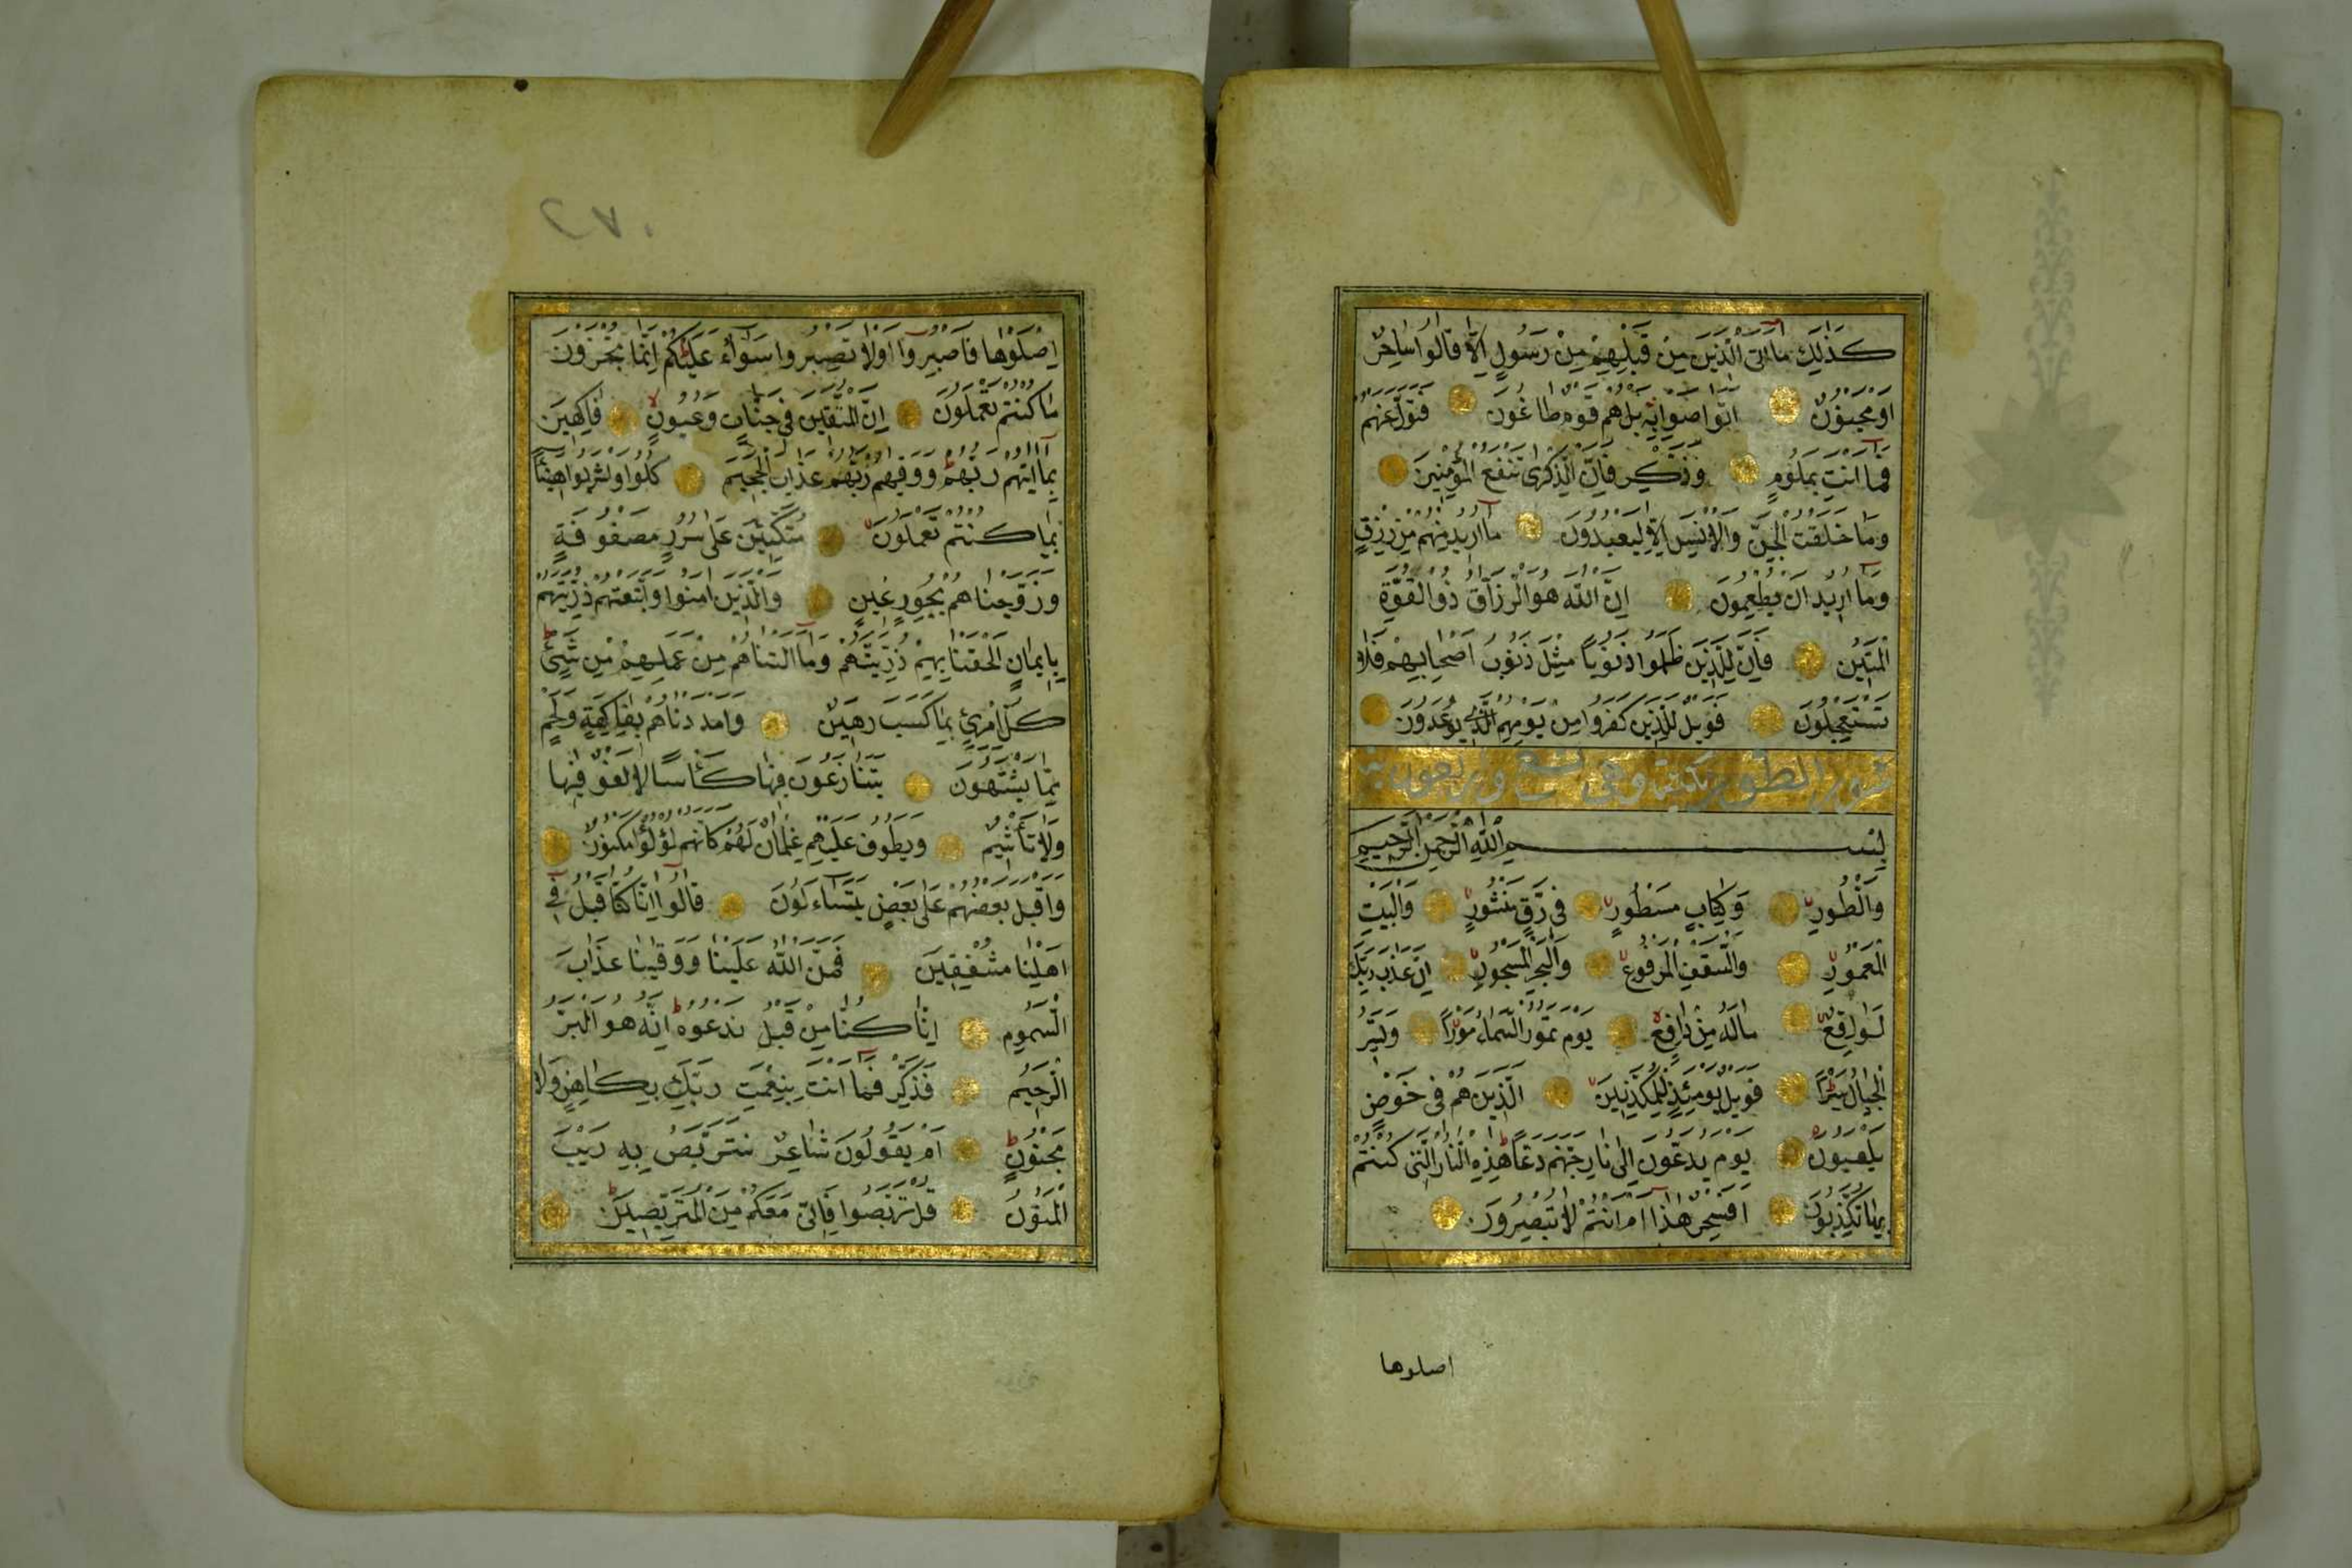 كَذٰلِكَ مَا اَتَى الَّذِينَ مِنْ قَبْلِهِمْ مِنْ رَسُولٍ اِلَّا قَالُوا سَاحِرٌ
اَوْ مَجْنُونٌ اَتَوَاصَوْا بِهِ بَلْ هُمْ قَوْمٌ طَاغُونَ فَتَوَلَّ عَنْهُمْ
فَمَا اَنْتَ بِمَلُومٍ وَذَكِّرْ فَاِنَّ الذِّكْرٰى تَنْفَعُ الْمُؤْمِنِينَ
وَمَا خَلَقْتُ الْجِنَّ وَالْاِنْسَ اِلَّا لِيَعْبُدُونِ مَا اُرِيدُ مِنْهُمْ مِنْ رِزْقٍ
وَمَا اُرِيدُ اَنْ يُطْعِمُونِ اِنَّ اللّٰهَ هُوَ الرَّزَّاقُ ذُو الْقُوَّةِ
الْمَتِينُ فَاِنَّ لِلَّذِينَ ظَلَمُوا ذَنُوبًا مِثْلَ ذَنُوبِ اَصْحَابِهِمْ فَلَا
تَسْتَعْجِلُونِ فَوَيْلٌ لِلَّذِينَ كَفَرُوا مِنْ يَوْمِهِمُ الَّذِي يُوعَدُونَ
سورة الطور مكية وهي تسع واربعون آية
بِسْمِ اللّٰهِ الرَّحْمٰنِ الرَّحِيمِ
وَالطُّورِ وَكِتَابٍ مَسْطُورٍ فِي رَقٍّ مَنْشُورٍ وَالْبَيْتِ
الْمَعْمُورِ وَالسَّقْفِ الْمَرْفُوعِ وَالْبَحْرِ الْمَسْجُورِ اِنَّ عَذَابَ رَبِّكَ
لَوَاقِعٌ مَا لَهُ مِنْ دَافِعٍ يَوْمَ تَمُورُ السَّمَاءُ مَوْرًا وَتَسِيرُ
الْجِبَالُ سَيْرًا فَوَيْلٌ يَوْمَئِذٍ لِلْمُكَذِّبِينَ الَّذِينَ هُمْ فِي خَوْضٍ
يَلْعَبُونَ يَوْمَ يُدَعُّونَ اِلٰى نَارِ جَهَنَّمَ دَعًّا هٰذِهِ النَّارُ الَّتِي كُنْتُمْ
بِهَا تُكَذِّبُونَ اَفَسِحْرٌ هٰذَا اَمْ اَنْتُمْ لَا تُبْصِرُونَ
اصلوها
٢٧٠
اِصْلَوْهَا فَاصْبِرُوا اَوْ لَا تَصْبِرُوا سَوَاءٌ عَلَيْكُمْ اِنَّمَا تُجْزَوْنَ
مَا كُنْتُمْ تَعْمَلُونَ اِنَّ الْمُتَّقِينَ فِي جَنَّاتٍ وَعُيُونٍ فَاكِهِينَ
بِمَا اٰتٰيهُمْ رَبُّهُمْ وَوَقٰيهُمْ رَبُّهُمْ عَذَابَ الْجَحِيمِ كُلُوا وَاشْرَبُوا هَنِيئًا
بِمَا كُنْتُمْ تَعْمَلُونَ مُتَّكِئِينَ عَلٰى سُرُرٍ مَصْفُوفَةٍ
وَزَوَّجْنَاهُمْ بِحُورٍ عِينٍ وَالَّذِينَ اٰمَنُوا وَاتَّبَعَتْهُمْ ذُرِّيَّتُهُمْ
بِاِيمَانٍ اَلْحَقْنَا بِهِمْ ذُرِّيَّتَهُمْ وَمَا اَلَتْنَاهُمْ مِنْ عَمَلِهِمْ مِنْ شَيْءٍ
كُلُّ امْرِئٍ بِمَا كَسَبَ رَهِينٌ وَاَمْدَدْنَاهُمْ بِفَاكِهَةٍ وَلَحْمٍ
مِمَّا يَشْتَهُونَ يَتَنَازَعُونَ فِيهَا كَأْسًا لَا لَغْوٌ فِيهَا
وَلَا تَأْثِيمٌ وَيَطُوفُ عَلَيْهِمْ غِلْمَانٌ لَهُمْ كَاَنَّهُمْ لُؤْلُؤٌ مَكْنُونٌ
وَاَقْبَلَ بَعْضُهُمْ عَلٰى بَعْضٍ يَتَسَاءَلُونَ قَالُوا اِنَّا كُنَّا قَبْلُ فِي
اَهْلِنَا مُشْفِقِينَ فَمَنَّ اللّٰهُ عَلَيْنَا وَوَقٰينَا عَذَابَ
السَّمُومِ اِنَّا كُنَّا مِنْ قَبْلُ نَدْعُوهُ اِنَّهُ هُوَ الْبَرُّ
الرَّحِيمُ فَذَكِّرْ فَمَا اَنْتَ بِنِعْمَتِ رَبِّكَ بِكَاهِنٍ وَلَا
مَجْنُونٍ اَمْ يَقُولُونَ شَاعِرٌ نَتَرَبَّصُ بِهِ رَيْبَ
الْمَنُونِ قُلْ تَرَبَّصُوا فَاِنِّي مَعَكُمْ مِنَ الْمُتَرَبِّصِينَ